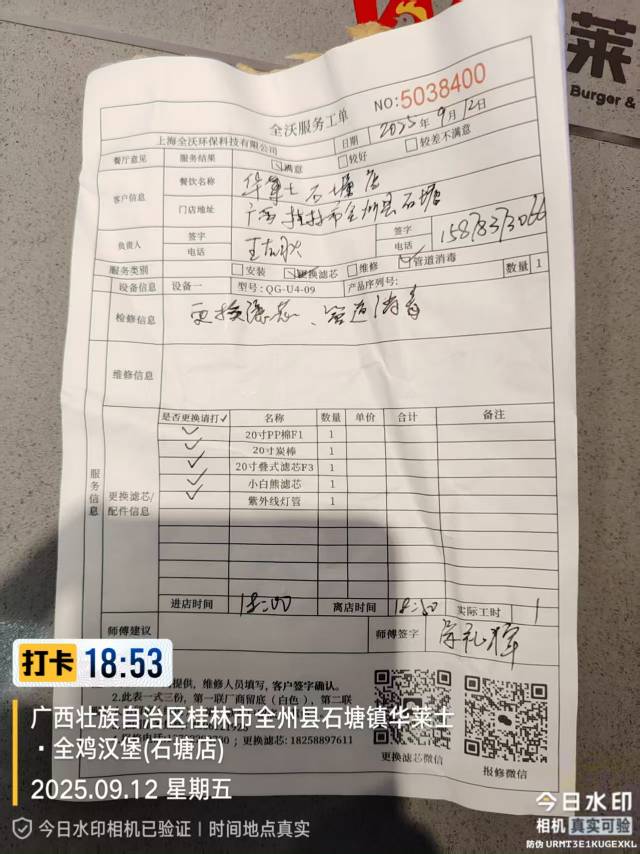 莱
Burger &
全沃服务工单
NO:5038400
上海全沃环保科技有限公司
日期 2025年9月12日
餐厅意见 服务结果 ☑满意 □较好 □较差不满意
客户信息 餐饮名称 华莱士石塘店
门店地址 广西桂林市全州县石塘
负责人 签字 签字
电话 电话 15878373066
服务类别 □安装 ☑更换滤芯 □维修 ☑管道消毒
设备信息 设备一 型号: QG-U4-09 产品序列号: 数量 1
检修信息 更换滤芯、管道消毒
维修信息
服务信息
更换滤芯/配件信息
是否更换请打✓ 名称 数量 单价 合计 备注
✓ 20寸PP棉F1 1
✓ 20寸炭棒 1
✓ 20寸叠式滤芯F3 1
✓ 小白熊滤芯 1
✓ 紫外线灯管 1
进店时间 18:00 离店时间 18:50 实际工时 1
师傅建议 师傅签字
提供，维修人员填写，客户签字确认。
2.此表一式三份，第一联厂商留底（白色），第二联
；更换滤芯: 18258897611
更换滤芯微信
报修微信
打卡 18:53
广西壮族自治区桂林市全州县石塘镇华莱士
·全鸡汉堡(石塘店)
2025.09.12 星期五
今日水印相机已验证 | 时间地点真实
今日水印
相机 真实可验
防伪 URMT3E1KUGEXKL